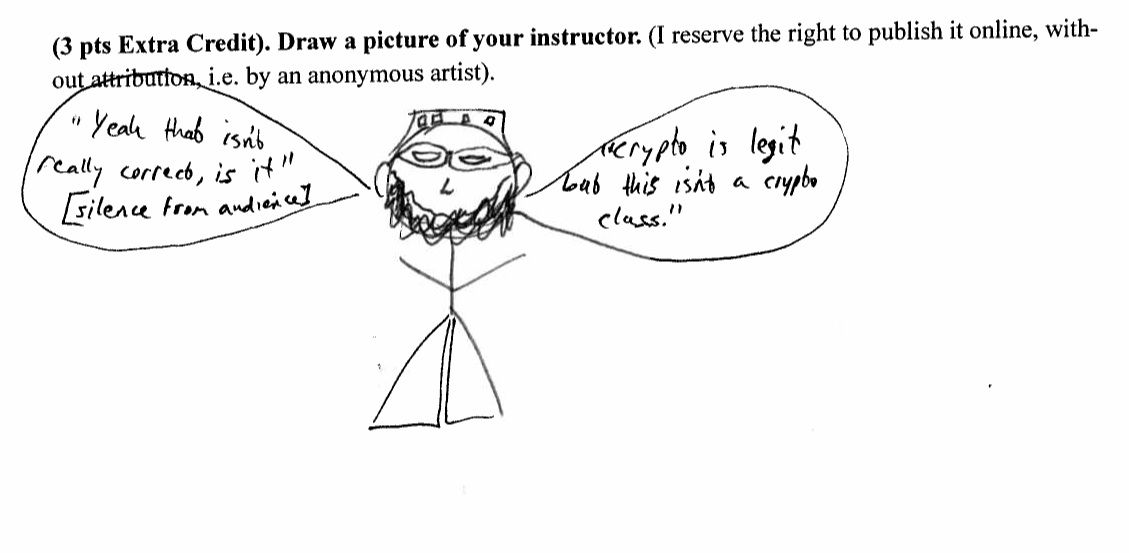 (3 pts Extra Credit). Draw a picture of your instructor. (I reserve the right to publish it online, with-
out attribution, i.e. by an anonymous artist).
"Yeah that isn't
really correct, is it"
[silence from audience]
"crypto is legit
but this isn't a crypto
class."